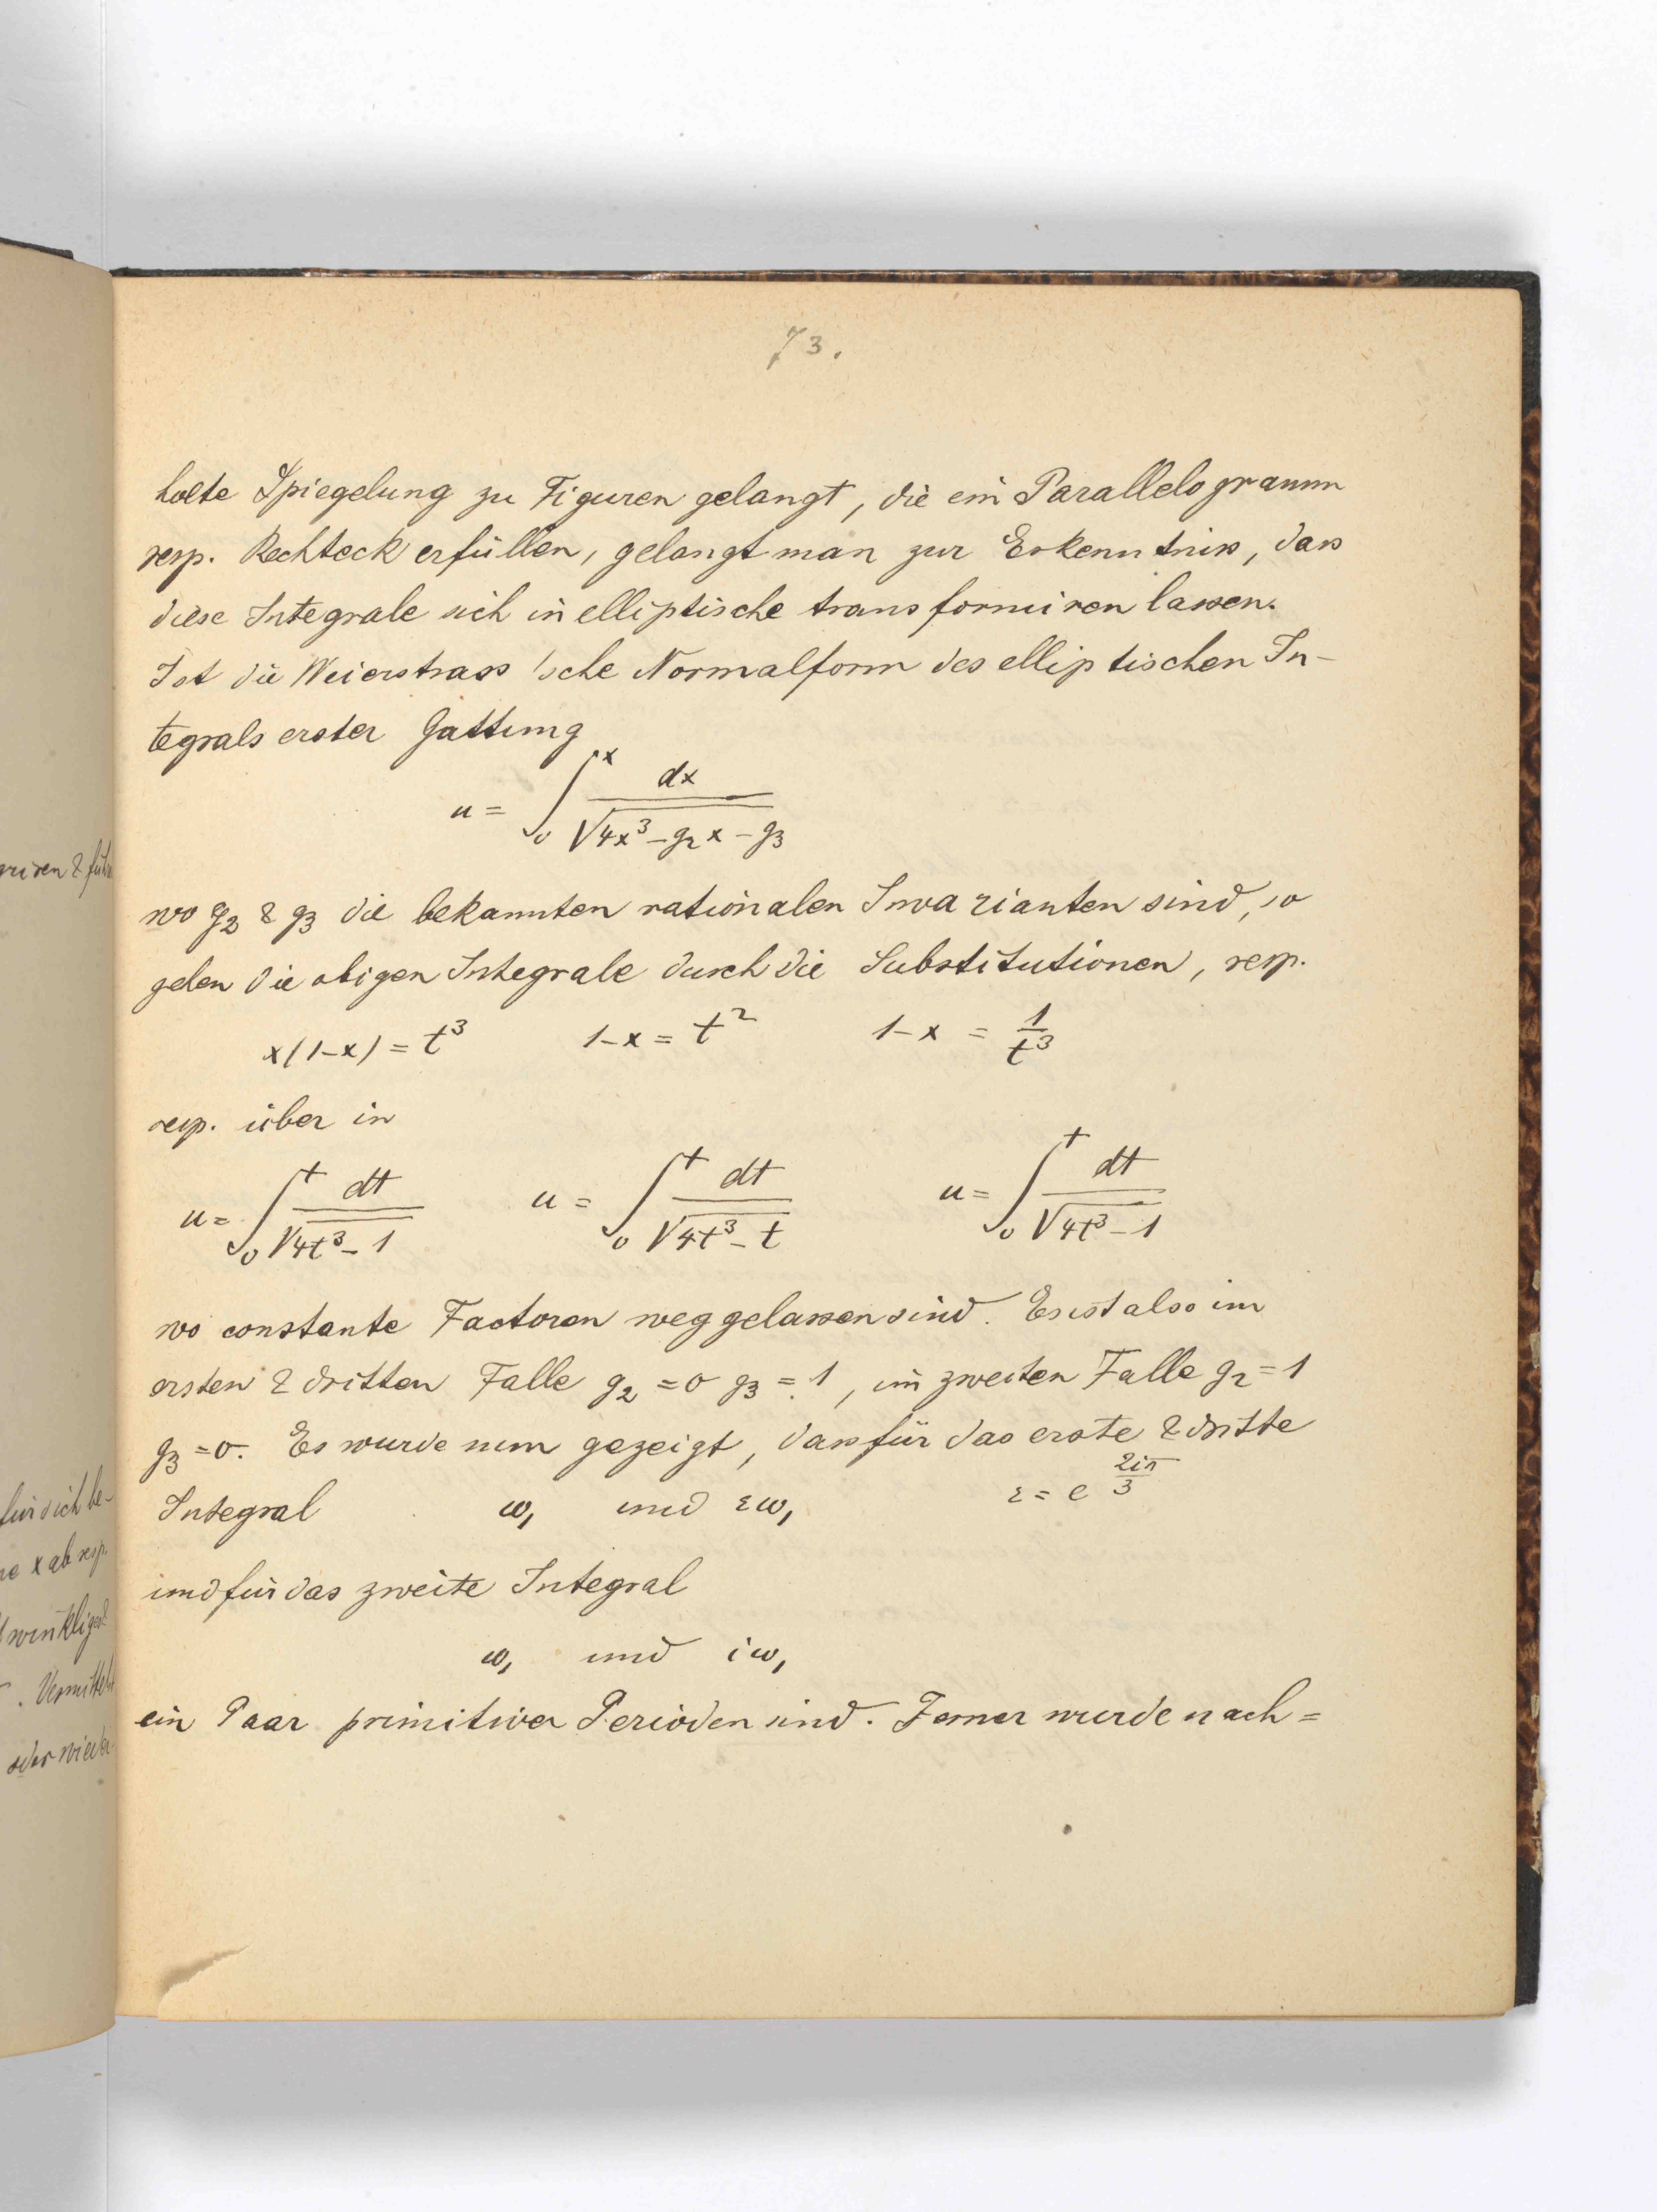 73.
holte Spiegelung zu Figuren gelangt, die ein Parallelogramm
resp. Rechteck erfüllen, gelangt man zur Erkenntniss, dass
diese Integrale sich in elliptische transformiren lassen.
Ist die Weierstrass'sche Normalform des elliptischen In-
tegrals erster Gattung
u = ∫₀ˣ dx / √(4x³ - g₂x - g₃)
wo g₂ & g₃ die bekannten rationalen Invarianten sind, so
gehen die obigen Integrale durch die Substitutionen, resp.
x(1-x) = t³   1-x = t²   1-x = 1/t³
resp. über in
u = ∫₀ᵗ dt / √(4t³ - 1)   u = ∫₀ᵗ dt / √(4t³ - t)   u = ∫₀ᵗ dt / √(4t³ - 1)
wo constante Factoren weggelassen sind. Es ist also im
ersten & dritten Falle g₂ = 0 g₃ = 1, im zweiten Falle g₂ = 1
g₃ = 0. Es wurde nun gezeigt, dass für das erste & dritte
Integral   ω₁ und εω₁   ε = e^(2iπ/3)
und für das zweite Integral
ω₁ und iω₁
ein Paar primitiver Perioden sind. Ferner wurde nach=
für sich be-
x ab resp.
winkliges
. Vermittelst
oder wieder-